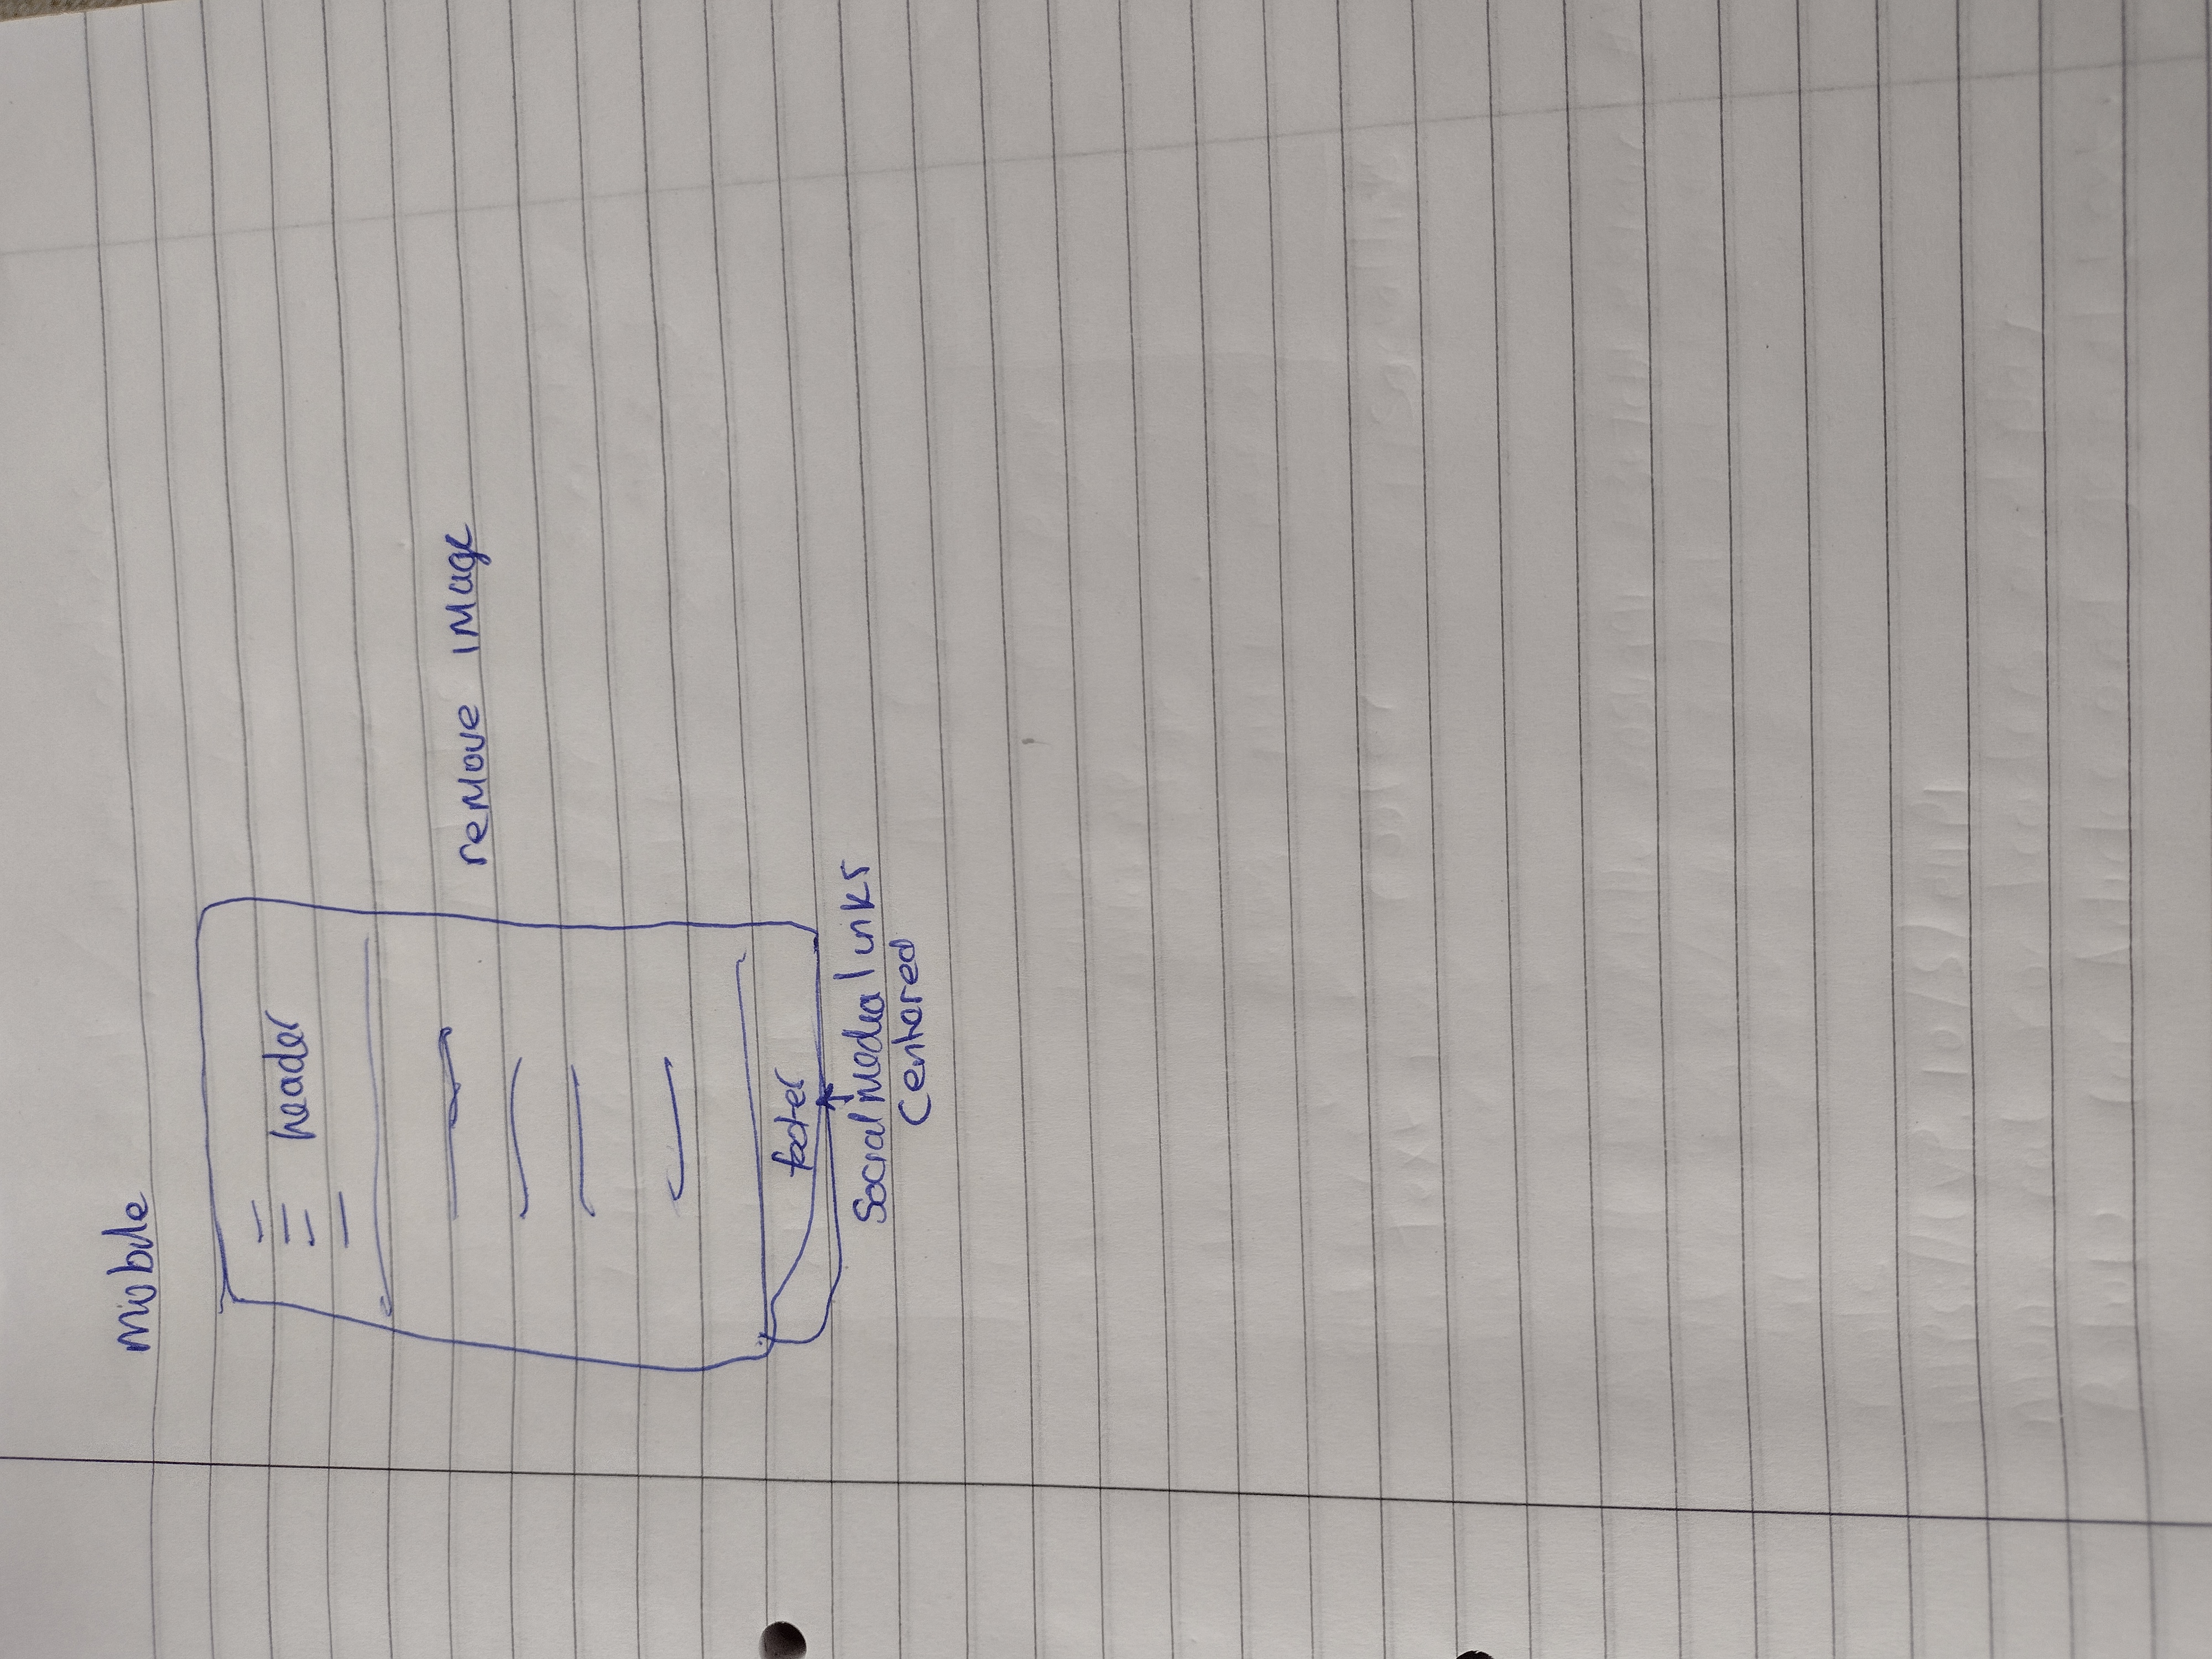 mobile
header
remove image
footer
Social Media links
Centered